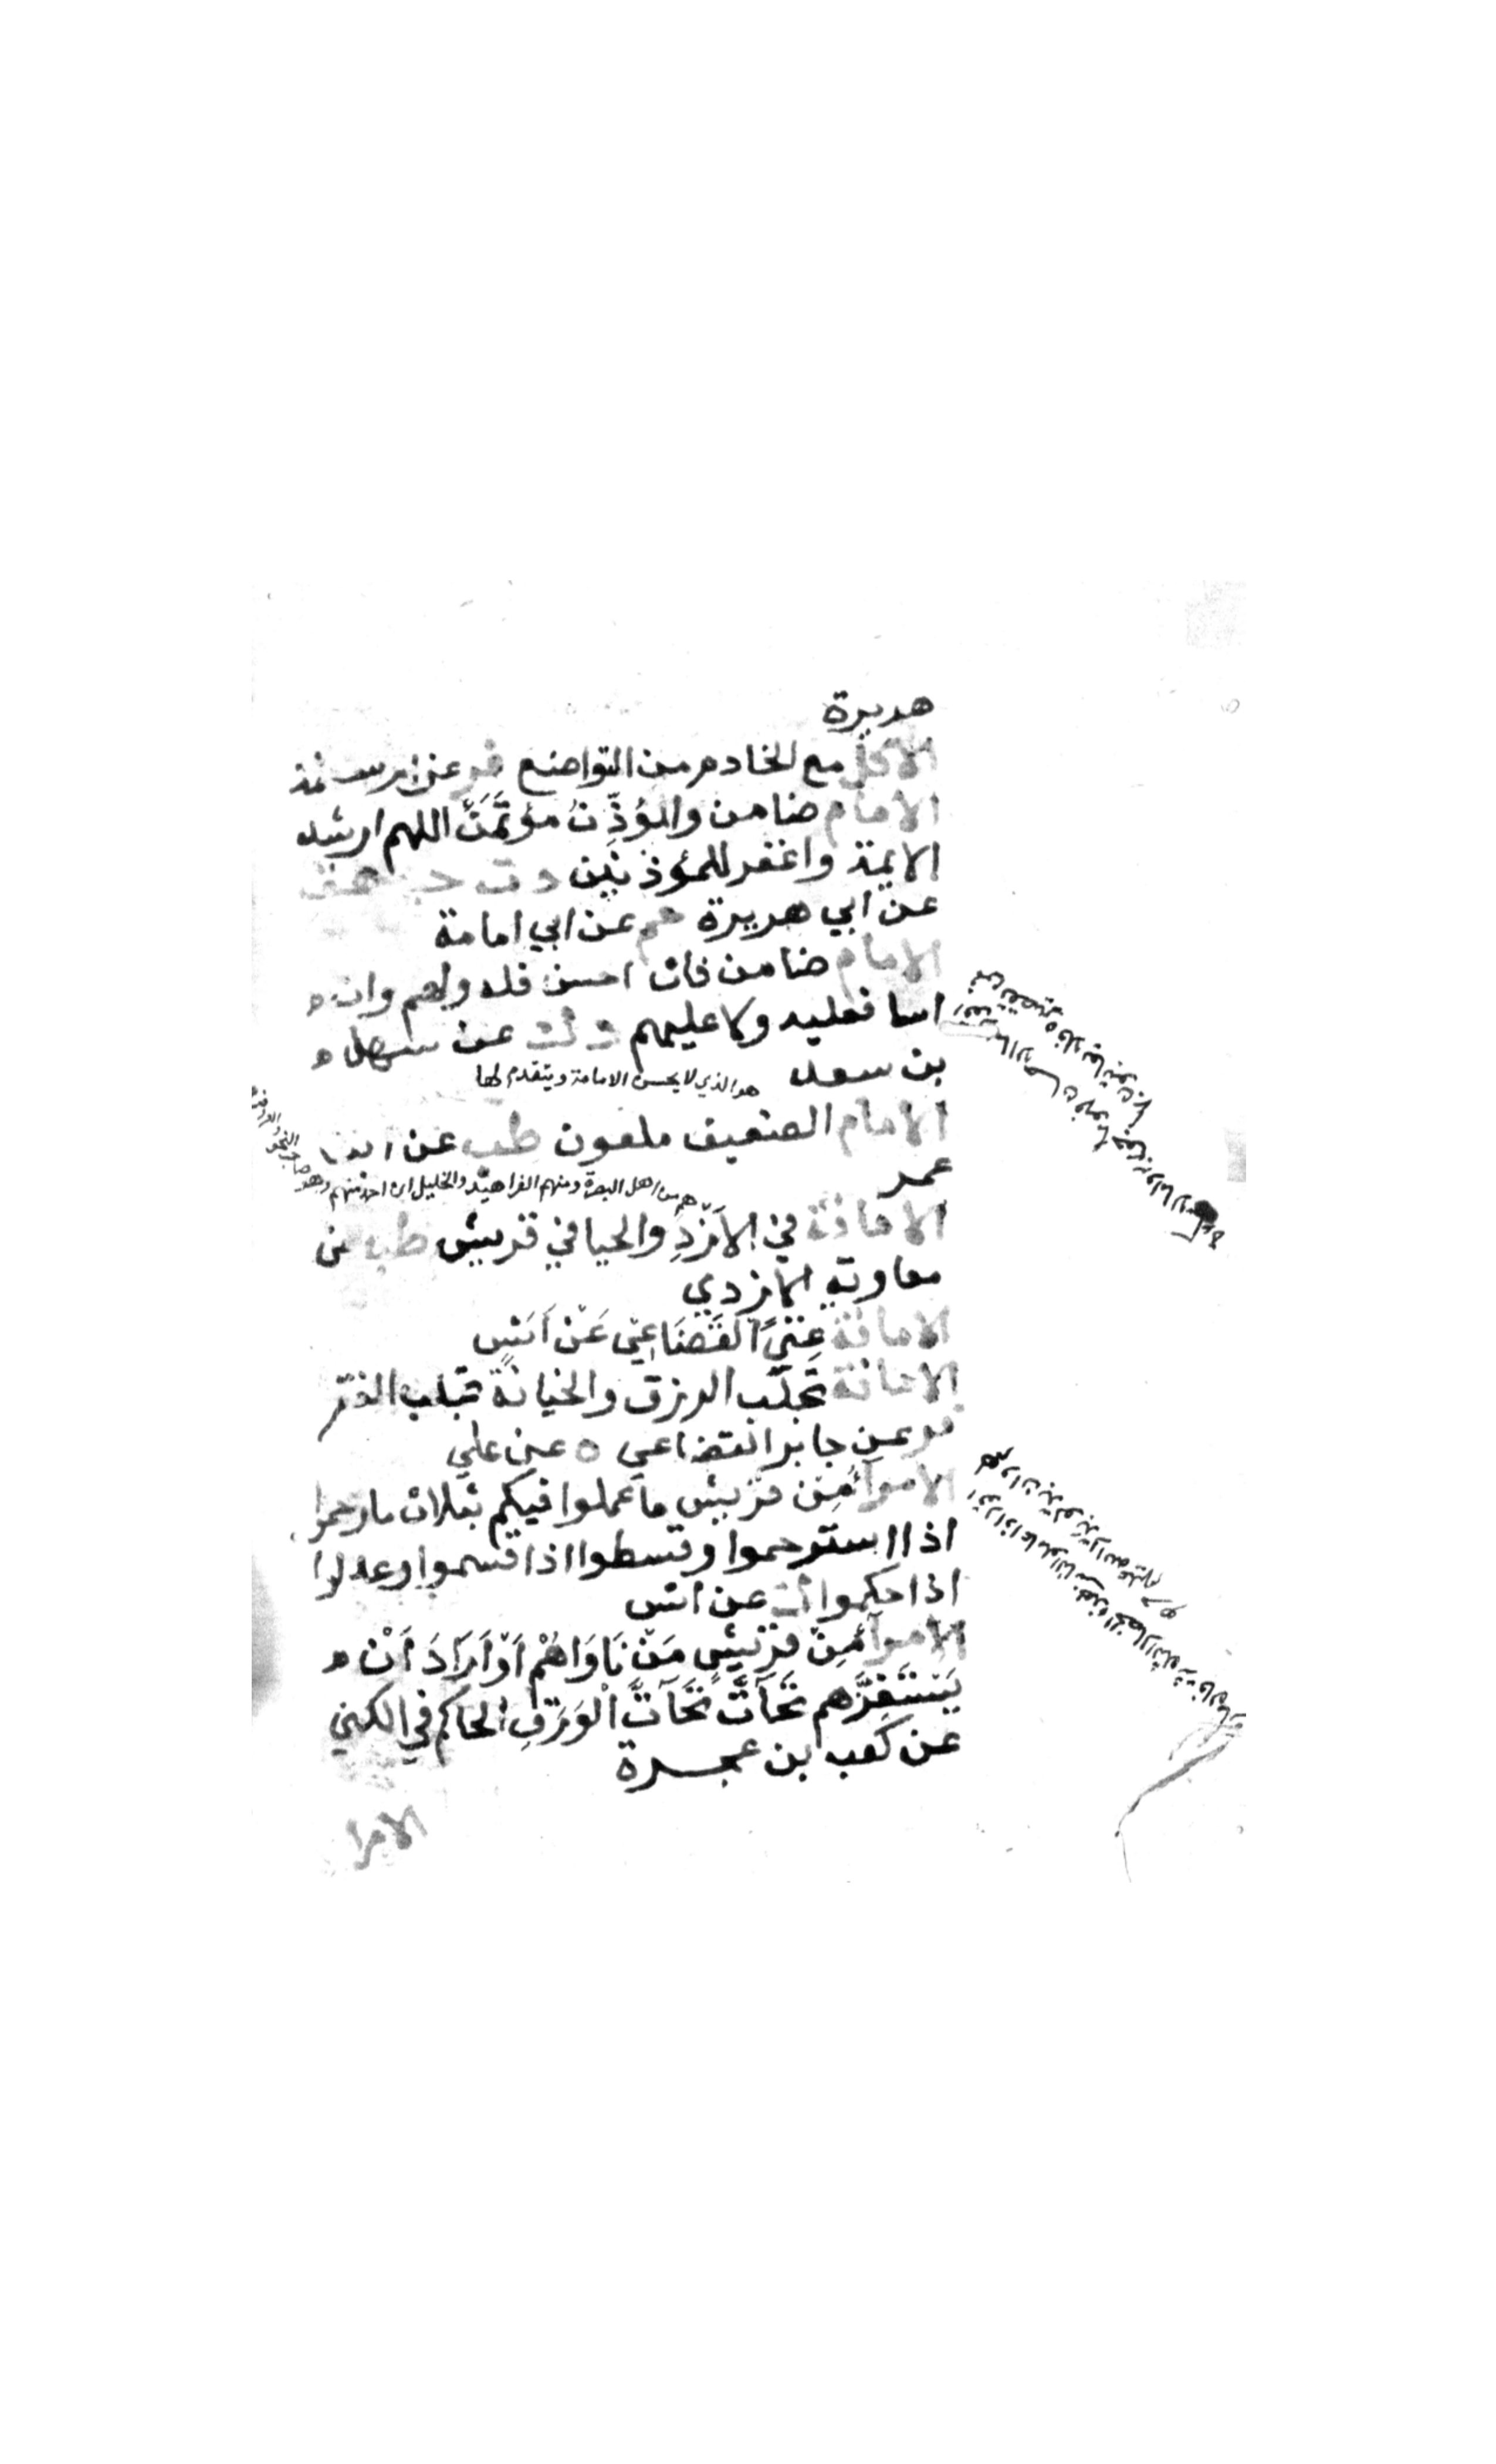 هريرة
الاكل مع الخادم من التواضع فر عن ام سلمة
الامام ضامن والمؤذِّنُ مؤتَمَنٌ اللهم ارشد
الايمة واغفر للمؤذنين د ت حب هق
عن ابي هريرة حم عن ابي امامة
الامام ضامن فان احسن فله ولهم وان
اسا فعليه ولا عليهم ه ك عن سهل
بن سعد
هو الذي لا يحسن الامامة ويتقدم لها
الامام الضعيف ملعون طب عن ابن
عمر
هم من اهل البصرة ومنهم الفراهيد والخليل ابن احمد منهم وهو صاحب النحو والعروض
الامانة في الأَزْدِ والحيا في قريش طب عن
معاوية الازدي
الامانة غِنًى القُضَاعِي عَنْ اَنَسٍ
الامانة تجلب الرزق والخيانة تجلب الفقر
فر عن جابر القضاعي ه عن علي
الامرآءُ مِن قريش ما عملوا فيكم بثلاث ما رحموا
اذا استرحموا وقسطوا اذا قسموا وعدلوا
اذا حكموا ك عن انس
الامرآءُ مِنْ قُرَيْشٍ مَنْ نَاوَاهُمْ اَوْ اَرَادَ اَنْ
يَسْتَفِزَّهم تَحَآتَّ تَحَآتَّ الْوَرَقِ الحاكم في الكنى
عن كعب ابن عجرة
الامرا